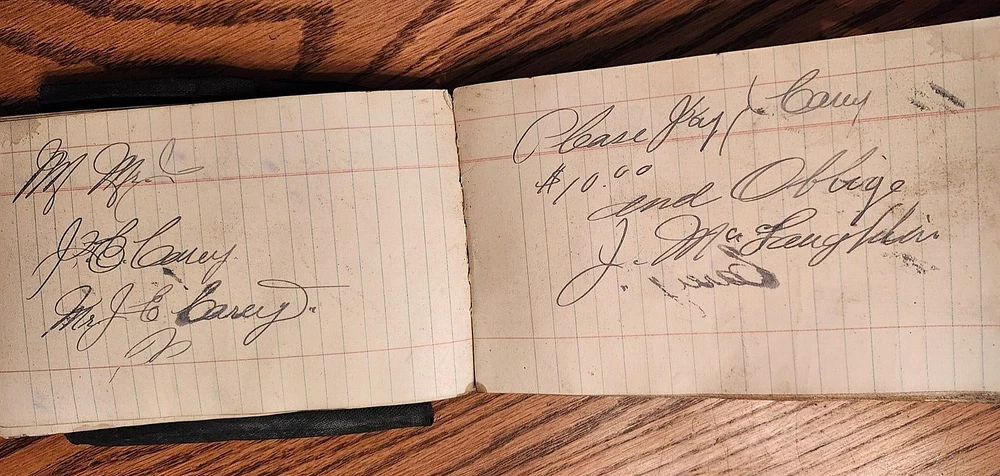 M Mr. C
J. E. Carey.
Mr J E Carey.
Please Pay J. Carey
$10.00
and Oblige
J. McLaughlin